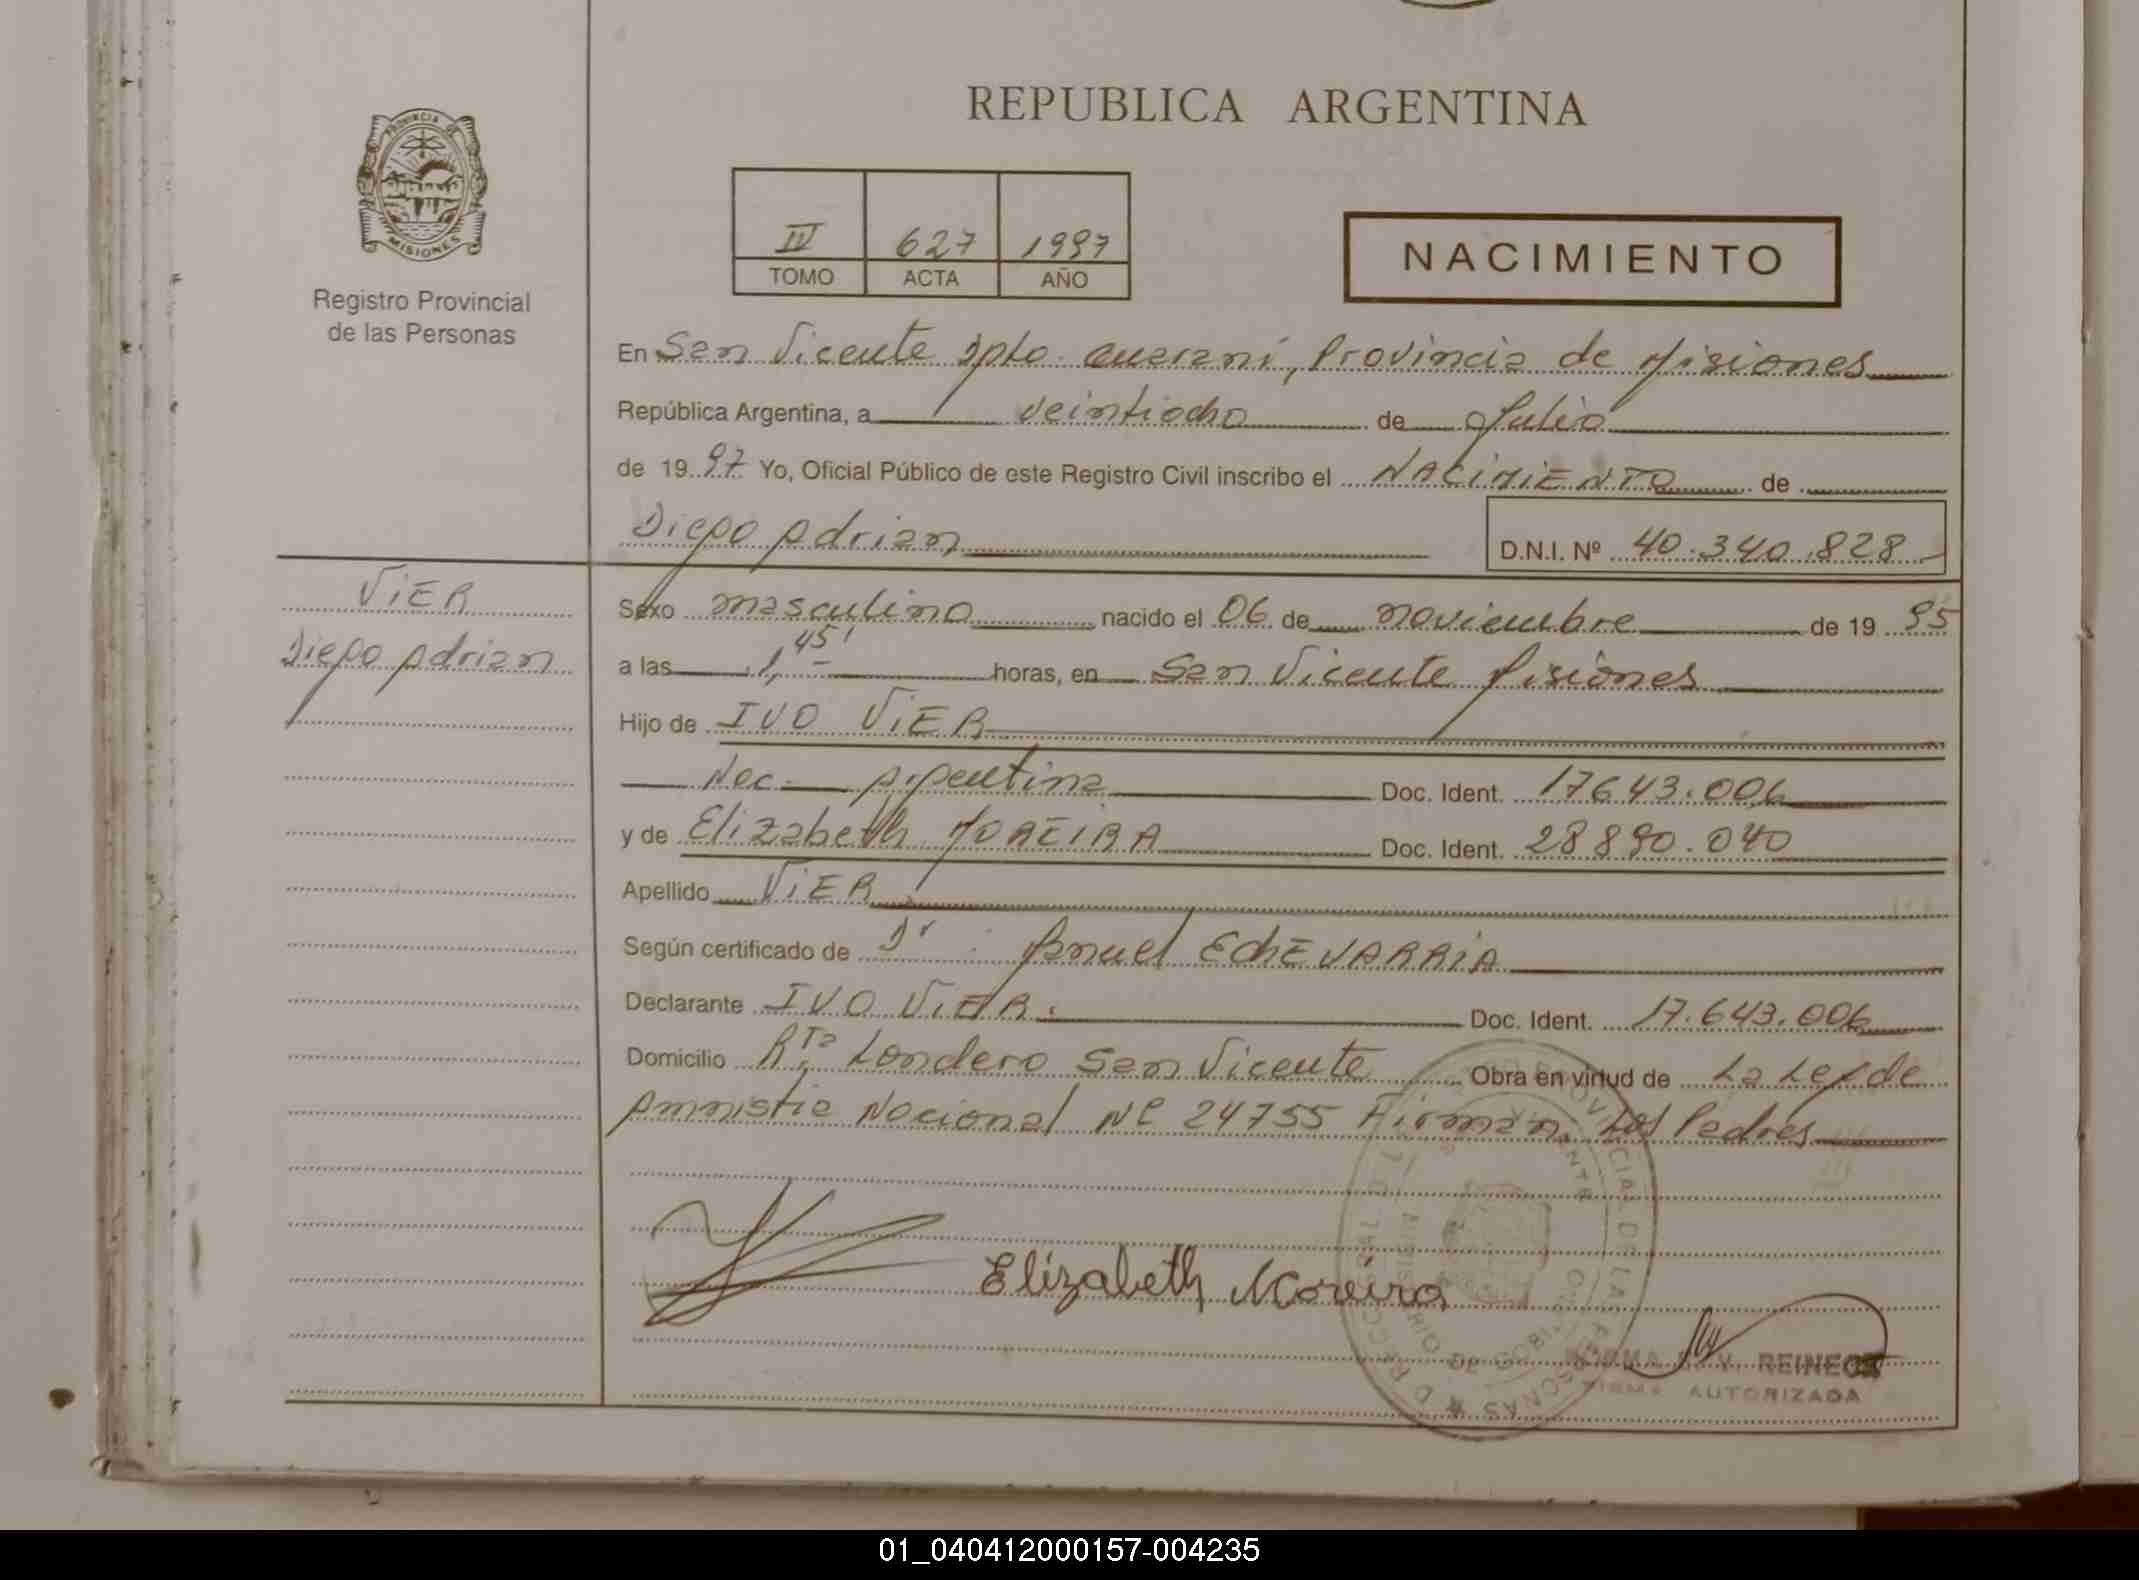 REPUBLICA ARGENTINA
PROVINCIA DE
MISIONES
Registro Provincial
de las Personas
IV 627 1997
TOMO ACTA AÑO
NACIMIENTO
En San Vicente Dpto. Guaraní, Provincia de Misiones
República Argentina, a veintiocho de Julio
de 1997 Yo, Oficial Público de este Registro Civil inscribo el NACIMIENTO de
Diego Adrian
D.N.I. Nº 40.340.828
VIER
Diego Adrian
Sexo masculino nacido el 06 de noviembre de 1995
a las 1,45' horas, en San Vicente Misiones
Hijo de IVO VIER
Nac. Argentina Doc. Ident. 17643.006
y de Elizabeth MOREIRA Doc. Ident. 28890.040
Apellido VIER
Según certificado de Dr. Manuel EchEVARRIA
Declarante IVO VIER. Doc. Ident. 17.643.006
Domicilio Rta Londero San Vicente Obra en virtud de La Ley de
Amnistia Nacional Nº 24755 Firman Los Padres
Elizabeth Moreira
NORMA V. REINECK
FIRMA AUTORIZADA
01_040412000157-004235